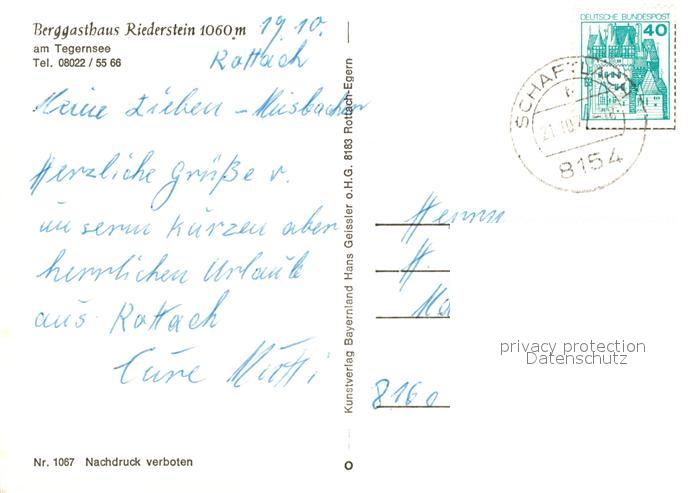 Berggasthaus Riederstein 1060 m
am Tegernsee
Tel. 08022 / 55 66
19.10.
Rottach
Meine Lieben - Miesbacher
Herzliche Grüße v.
unserm kurzen aber
herrlichen Urlaub
aus Rottach
Eure Mutti
Nr. 1067 Nachdruck verboten
Kunstverlag Bayernland Hans Geissler o.H.G. 8183 Rottach-Egern
DEUTSCHE BUNDESPOST
40
SCHAFTLACH
8154
Herrn
H.
Ma
privacy protection
Datenschutz
8160